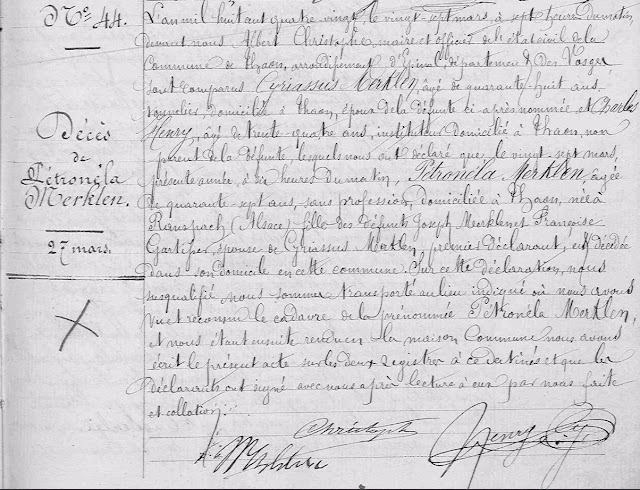 N° 44.
Décès
de
Pétronéla
Merklen.
27 mars.
L'an mil huit cent quatre vingt, le vingt-sept mars, à sept heures du matin,
devant nous Albert Christophe, maire et officier de l'état civil de la
Commune de Thaon, arrondissement d'Epinal, département des Vosges
sont comparus Cyriassus Merklen, âgé de quarante-huit ans,
domicilié à Thaon, époux de la défunte ci-après nommée et Charles
Henry, âgé de trente-quatre ans, instituteur domicilié à Thaon, non
parent de la défunte, lesquels nous ont déclaré que le vingt-sept mars,
présente année, à six heures du matin, Pétronéla Merklen, âgée
de quarante-sept ans, sans profession, domiciliée à Thaon, née à
Ranspach (Alsace) fille des défunts Joseph Merklen et Françoise
épouse de Cyriassus Merklen, premier déclarant, est décédée
dans son domicile en cette commune. Sur cette déclaration, nous
susqualifié nous sommes transporté au lieu indiqué où nous avons
vu et reconnu le cadavre de la prénommée Pétronéla Merklen,
et nous étant ensuite revenu à la maison Commune nous avons
écrit le présent acte sur les deux registres à ce destinés et que les
déclarants ont signé avec nous après lecture à eux par nous faite
et collation.
Christophe
Henry